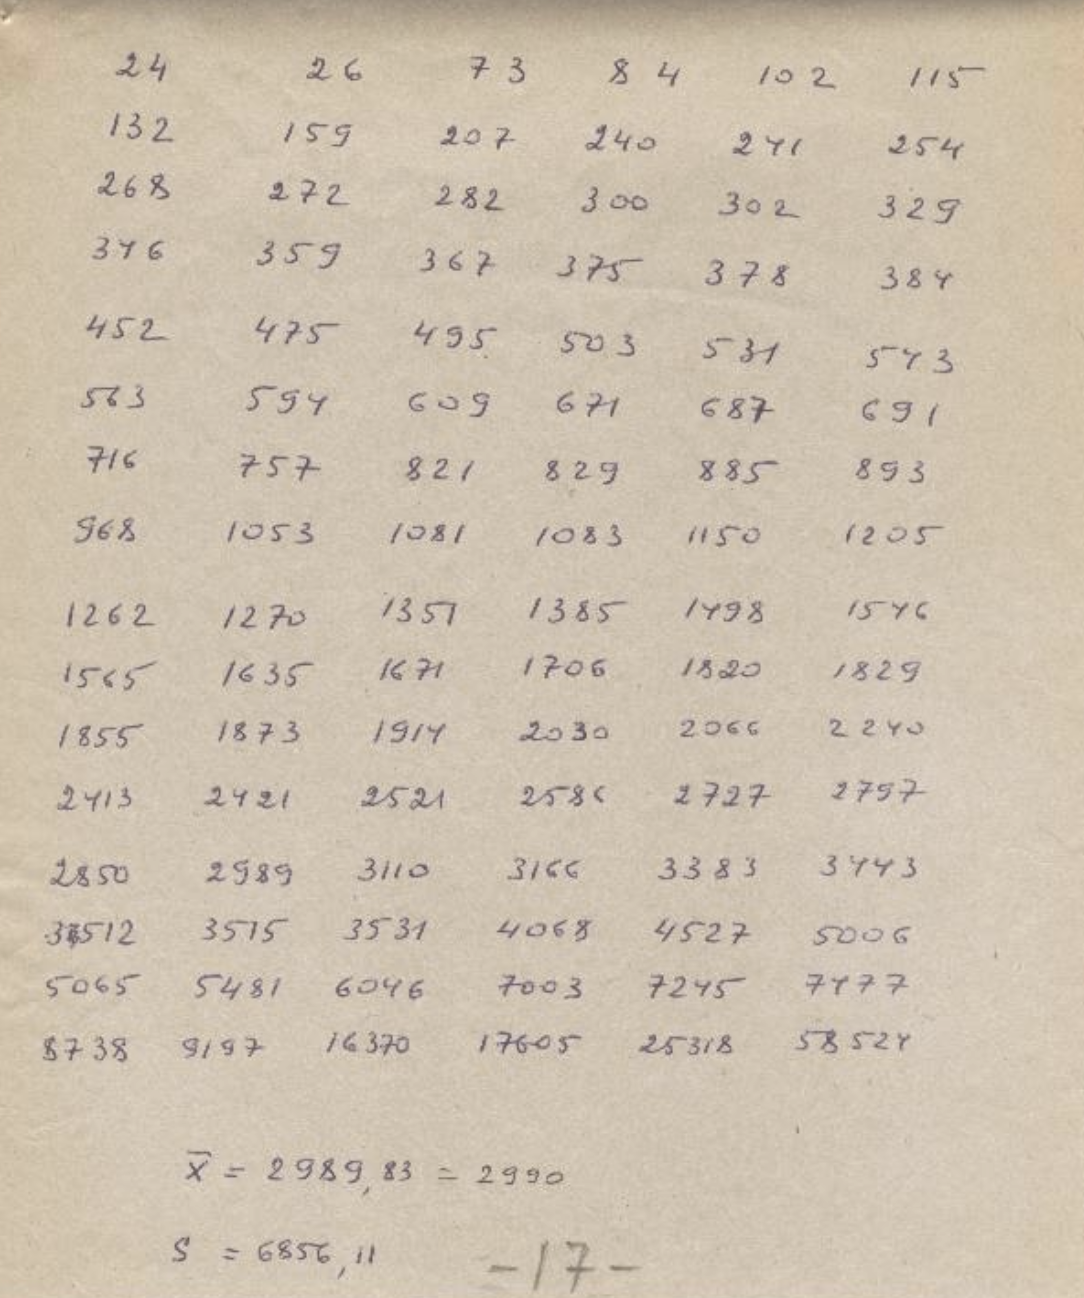 24 26 73 84 102 115
132 159 207 240 241 254
268 272 282 300 302 329
346 359 367 375 378 384
452 475 495 503 531 543
563 594 609 671 687 691
716 757 821 829 885 893
968 1053 1081 1083 1150 1205
1262 1270 1351 1385 1498 1546
1565 1635 1671 1706 1820 1829
1855 1873 1914 2030 2066 2240
2413 2421 2521 2586 2727 2797
2850 2989 3110 3166 3383 3443
3512 3515 3531 4068 4527 5006
5065 5481 6046 7003 7245 7477
8738 9197 16370 17605 25318 58524
x̄ = 2989,83 = 2990
S = 6856,11
-17-